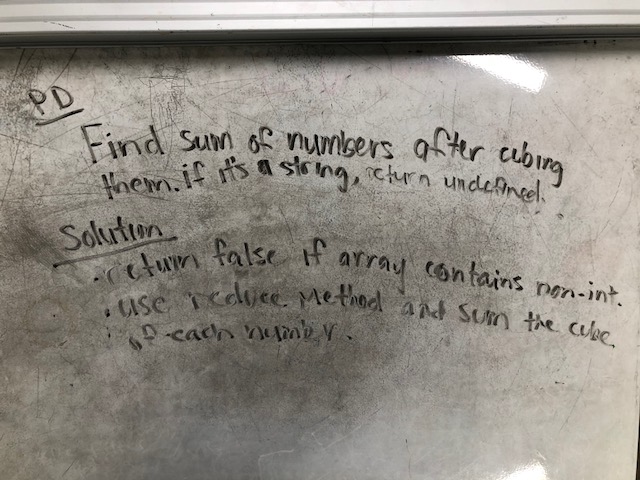 PD
Find sum of numbers after cubing
them. if it's a string, return undefined.
Solution
. return false if array contains non-int.
. use reduce Method and sum the cube
of each number.